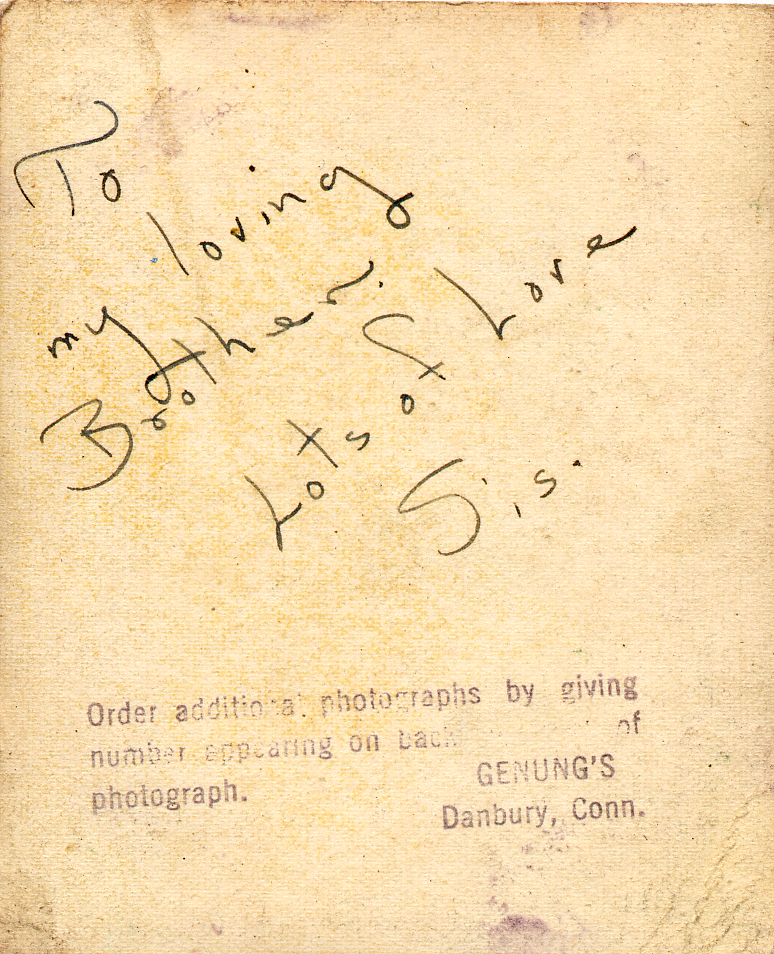 To
my loving
Brother.
Lots of Love
Sis.
Order additional photographs by giving
number appearing on back of
photograph.
GENUNG'S
Danbury, Conn.